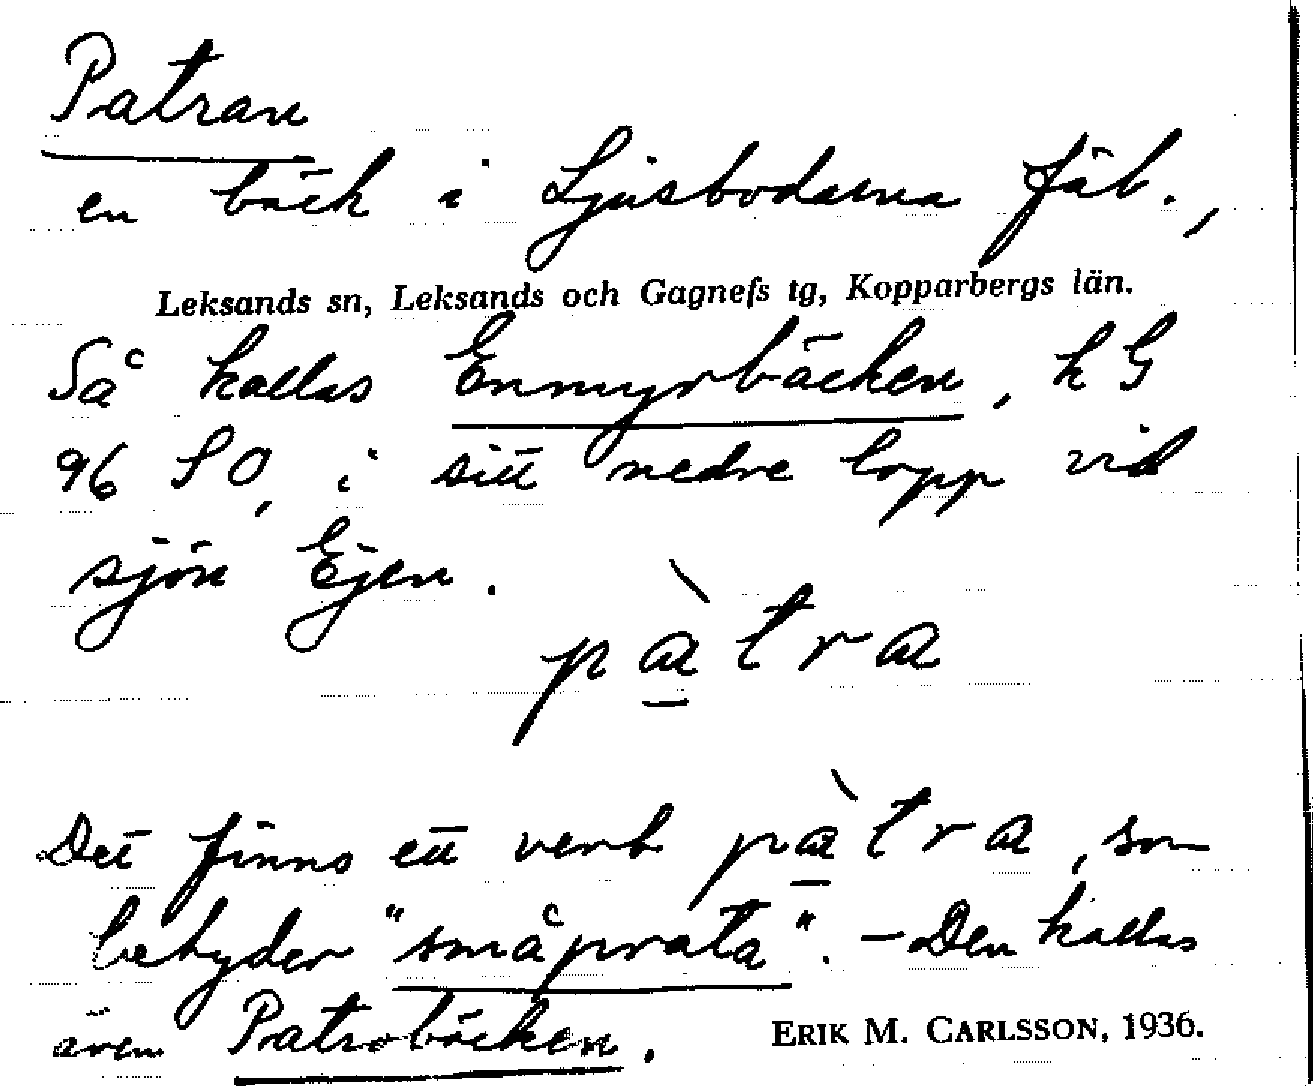 Patran
en bäck i Ljusbodarna fäb.,
Leksands sn, Leksands och Gagnefs tg, Kopparbergs län.
Så kallas Enmyrbäcken, h G
96 SO, i sitt nedre lopp vid
sjön Ejen.
pàtra
Det finns ett verb pàtra, som
betyder "småprata". – Den kallas
även Patrobäcken.
ERIK M. CARLSSON, 1936.